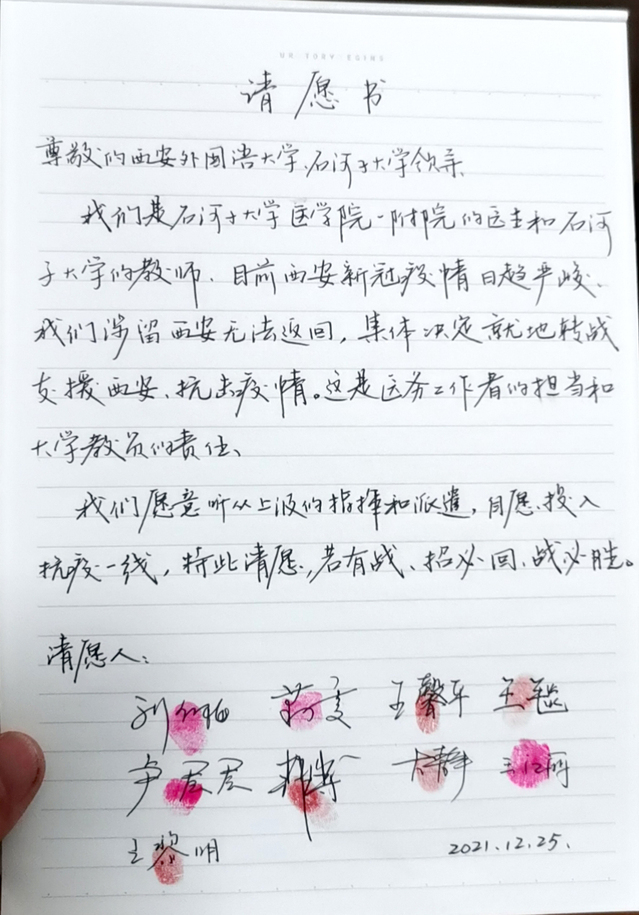 MR TORY EGINS
请愿书
尊敬的西安外国语大学、石河子大学领导
我们是石河子大学医学院一附院的医生和石河
子大学的教师、目前西安新冠疫情日趋严峻、
我们滞留西安无法返回，集体决定就地转战
支援西安、抗击疫情。这是医务工作者的担当和
大学教员的责任、
我们愿意听从上级的指挥和派遣，自愿投入
抗疫一线，特此请愿，若有战、招必回、战必胜。
请愿人：
王馨平
卢君君
王江丽
王黎明 2021.12.25.